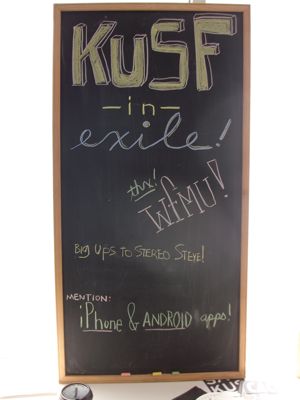 KUSF
-in-
exile!
thx!
WFMU!
BIG UPS TO STEREO STEVE!
MENTION:
iPhone & ANDROID apps!